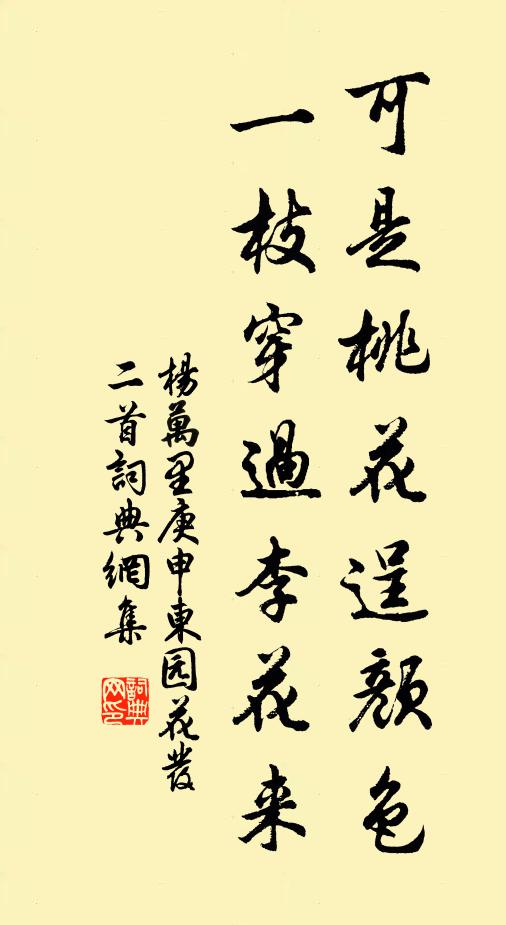 可是桃花逞顏色
一枝穿過李花来
楊萬里庚申東园花發
二首詞典網集
詞典
网印